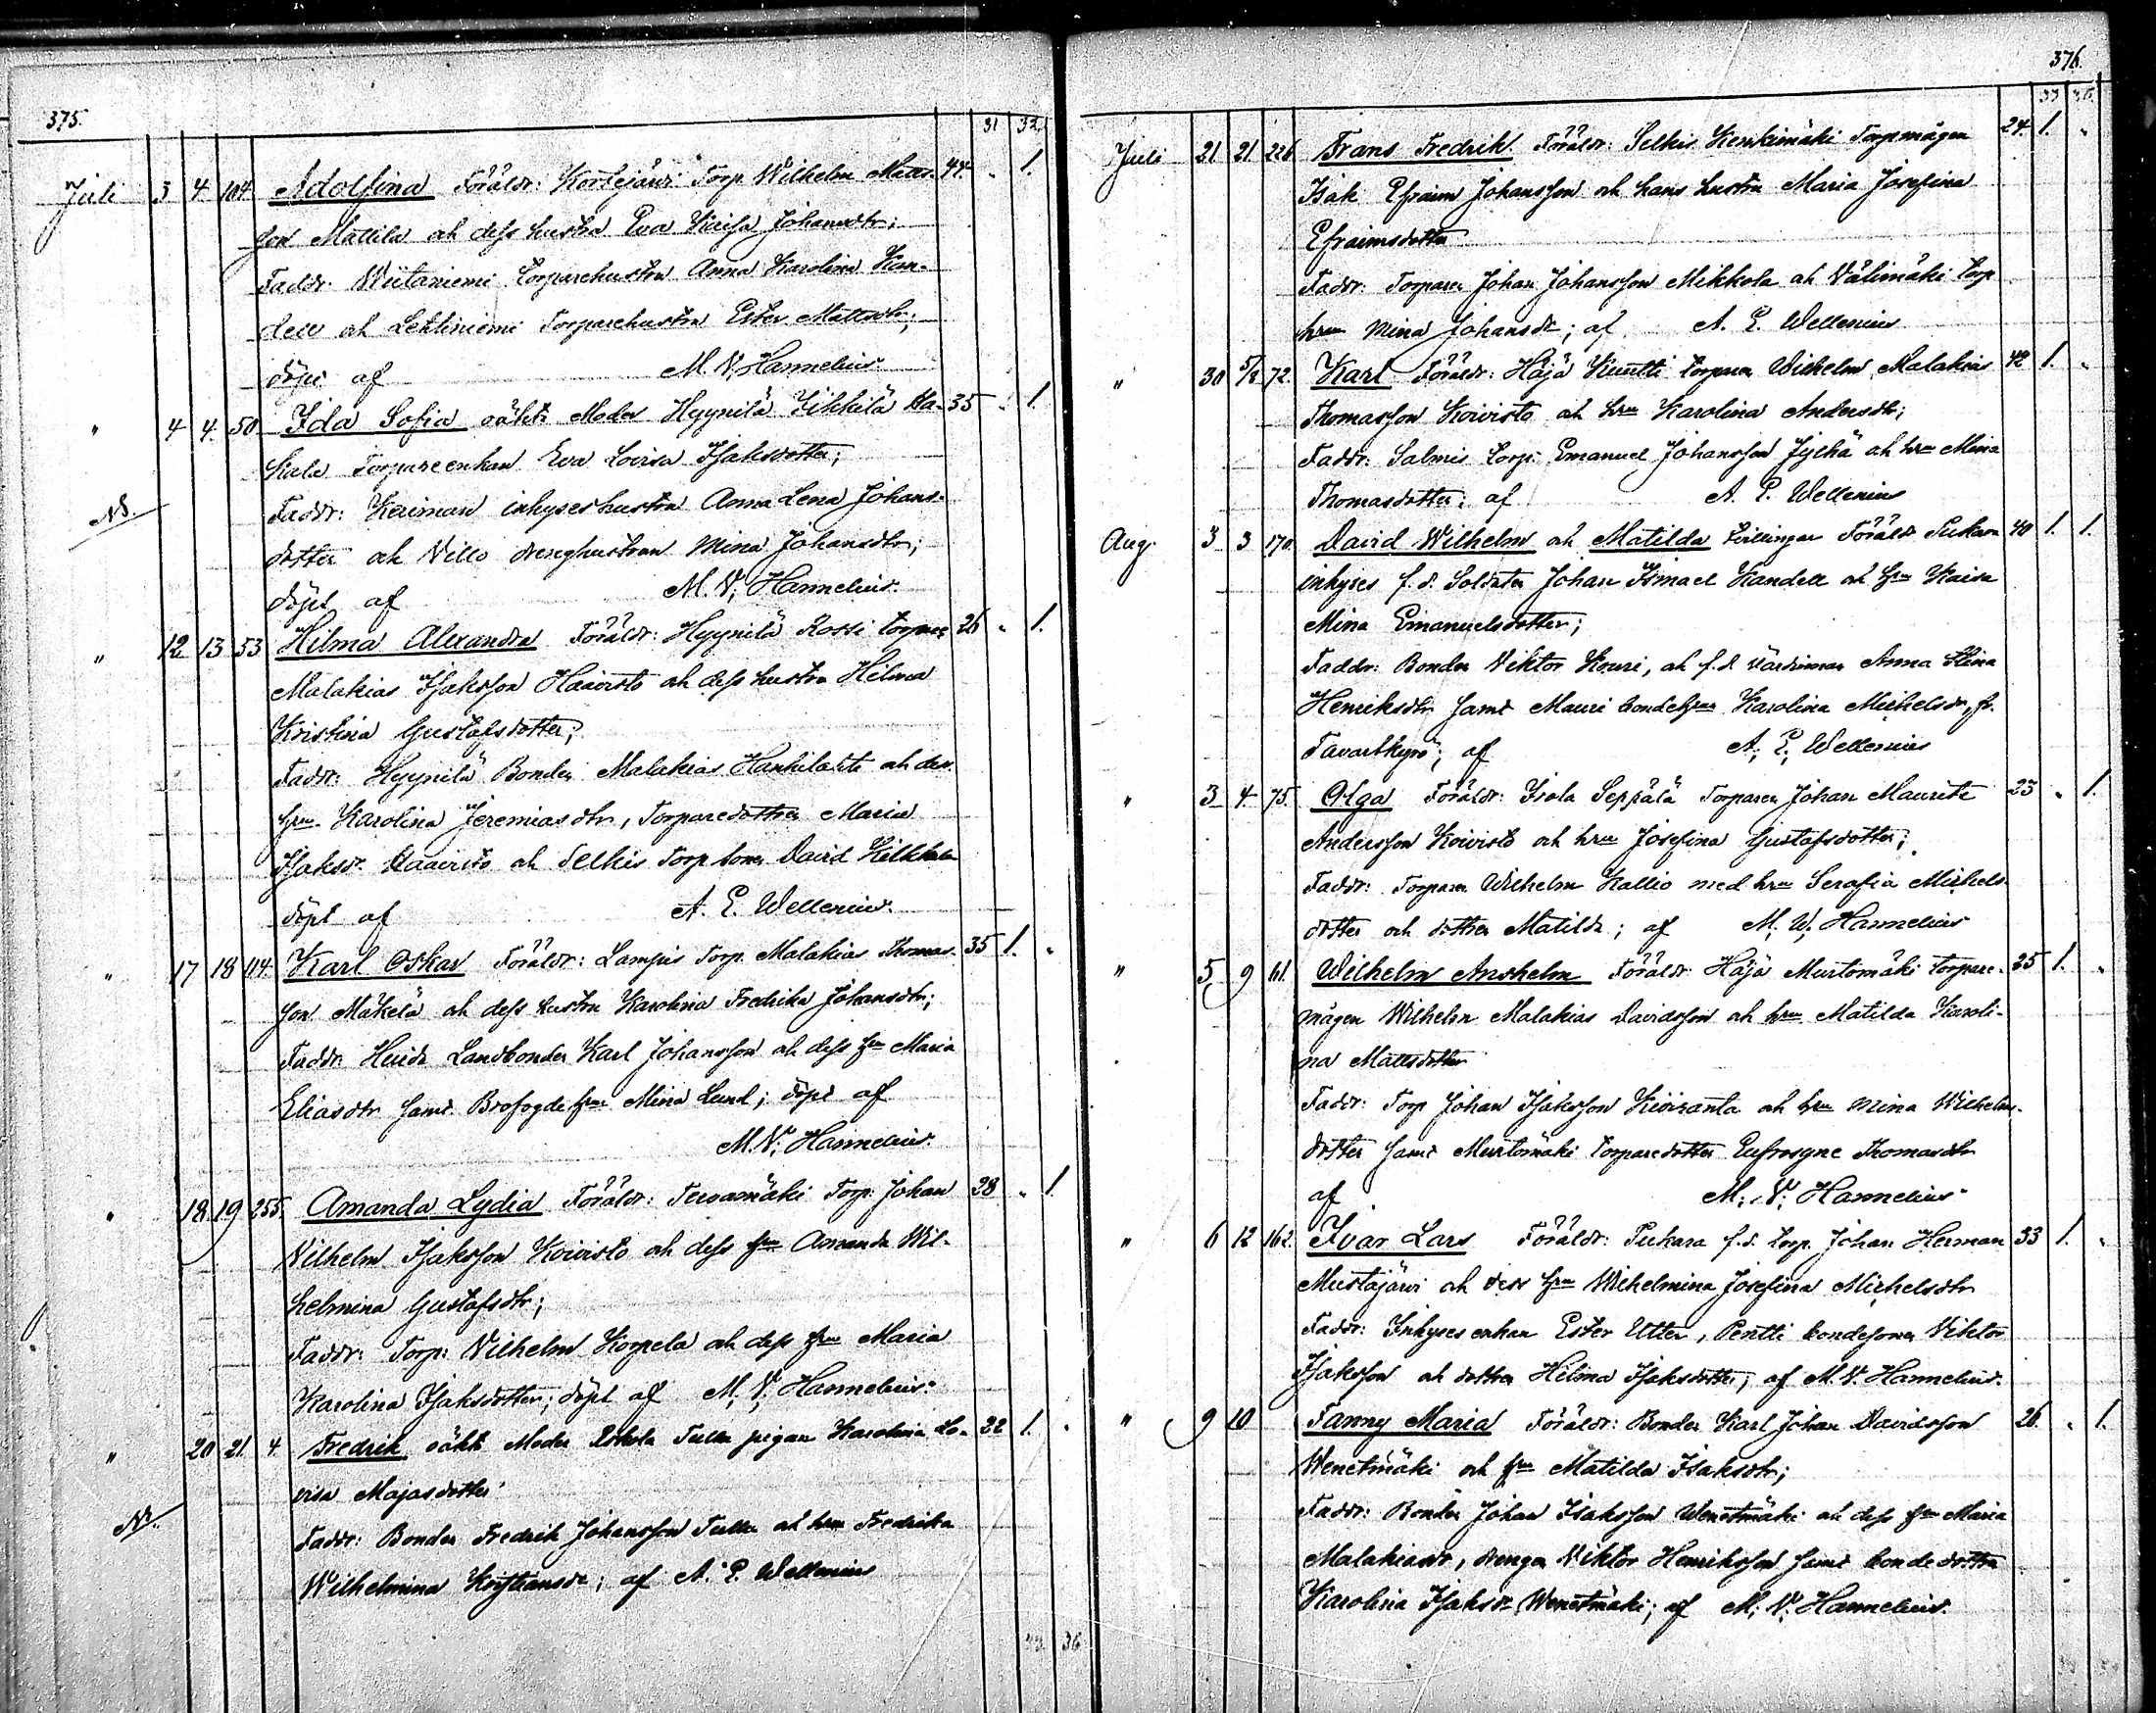 375.
31 32.
Juli 3 4 104. Adolfina Föräldr: Kortejärvi Torp. Wilhelm Matts- 44 „ 1.
son Mattila och dess hustru Eva Kaisa Johansdtr;
Faddr. Wiitaniemi torparehustrun Anna Karolina Kan-
dell och Lehtiniemi Torparehustrun Ester Mattsdtr;
döpt af M. V. Hannelius.
„ 4 4. 50 Ida Sofia oäkta Moder Hyynilä 35 „ 1.
Torpareenkan Eva Lovisa Isaksdotter;
Faddr: inhyseshustrun Anna Lena Johans-
dotter och Villo drenghustrun Mina Johansdtr;
döpt af M. V. Hannelius.
„ 12 13 53 Hilma Alexandra Föräldr: Hyynilä Rossi torparen 26 „ 1.
Malakias Isaksson Haavisto och dess hustru Hilma
Kristina Gustafsdotter;
Faddr: Hyynilä Bonden Malakias Hankilahti och dess
hru Karolina Jeremiasdtr, Torparedottren Maria
Isaksdr. Haavisto och Selkis Torp. sonen David
döpt af A. E. Wellenius.
„ 17 18 114. Karl Oskar Föräldr: Lampis Torp. Malakias Thomas- 35 1. „
son Mäkelä och dess hustru Karolina Fredrika Johansdtr;
Faddr. Landbonden Karl Johansson och dess hru Maria
Eliasdtr samt Brofogdehru Mina Lund; döpt af
M. V. Hannelius.
„ 18. 19 255. Amanda Lydia Föräldr: Tervamäki Torp: Johan 28 „ 1.
Vilhelm Isaksson Koivisto och dess hru Amanda Wil-
helmina Gustafsdtr;
Faddr: Torp: Vilhelm Korpela och dess hru Maria
Karolina Isaksdotter; döpt af M. V. Hannelius.
„ 20 21. 4. Fredrik oäkta Moder pigan Karolina Lo- 22 1. „
visa Majasdotter
Faddr: Bonden Fredrik Johansson och hru Fredrika
Wilhelmina Kristiansdr; af A. E. Wellenius
376.
33 36.
Juli 21 21 226 Frans Fredrik Föräldr: Selkis Kenkimäki Torpmågen 24. 1. „
Isak Efraim Johansson och hans hustru Maria Josefina
Efraimsdotter
Faddr: Torparen Johan Johansson Mikkola och Välimäki torp
hrun Mina Johansdr; af A. E. Wellenius
„ 30 5/8 72. Karl Föräldr: Häjä Kuntti torparen Wilhelm Malakias 42 1. „
Thomasson Koivisto och hru Karolina Andersdtr;
Faddr: Salmis torp: Emanuel Johansson Jylhä och hru Mina
Thomasdotter; af A. E. Wellenius
Aug. 3 3 170. David Wilhelm och Matilda tvillingar Föräldr Pukara 40 1. 1.
inhyses f.d. Soldaten Johan Ismael Kandell och hru Kaisa
Mina Emanuelsdotter;
Faddr: Bonden Viktor Kouri, och f.d. värdinnan Anna Stina
Henriksdtr samt Mauri bondehrun Karolina Michelsdr, fr.
Tavastkyrö; af A. E. Wellenius
„ 3 4 75. Olga Föräldr: Isola Seppälä Torparen Johan Maurits 23 „ 1.
Andersson Koivisto och hru Josefina Gustafsdotter;
Faddr: Torparen Wilhelm Kallio med hru Serafia Michels-
dotter och dottren Matilda; af M. W. Hannelius
„ 5 9 61. Wilhelm Anshelm Föräldr: Häjä Murtomäki torpare- 25 1. „
mågen Wilhelm Malakias Davidsson och hru Matilda Karoli-
na Mattsdotter
Faddr: Torp Johan Isaksson Kiviranta och hru Mina Wilhelms-
dotter samt Murtomäki torparedotter Eufrosyne Thomasdtr
af M. V. Hannelius
„ 6 12 162. Ivar Lars Föräldr: Pukara f.d. torp. Johan Herman 33 1. „
Mustajärvi och dess hru Wilhelmina Josefina Michelsdtr
Faddr: Inhyses enkan Ester Utter, Pentti bondesonen Viktor
Isaksson och dottren Hilma Isaksdotter; af M. V. Hannelius.
„ 9 10 Fanny Maria Föräldr: Bonden Karl Johan Davidsson 26. „ 1.
Wenetmäki och hru Matilda Isaksdtr;
Faddr: Bonden Johan Isaksson Wenetmäki och dess hru Maria
Malakiasdr, drengen Viktor Henriksson samt bondedottren
Karolina Isaksdr Wenetmäki; af M. V. Hannelius.